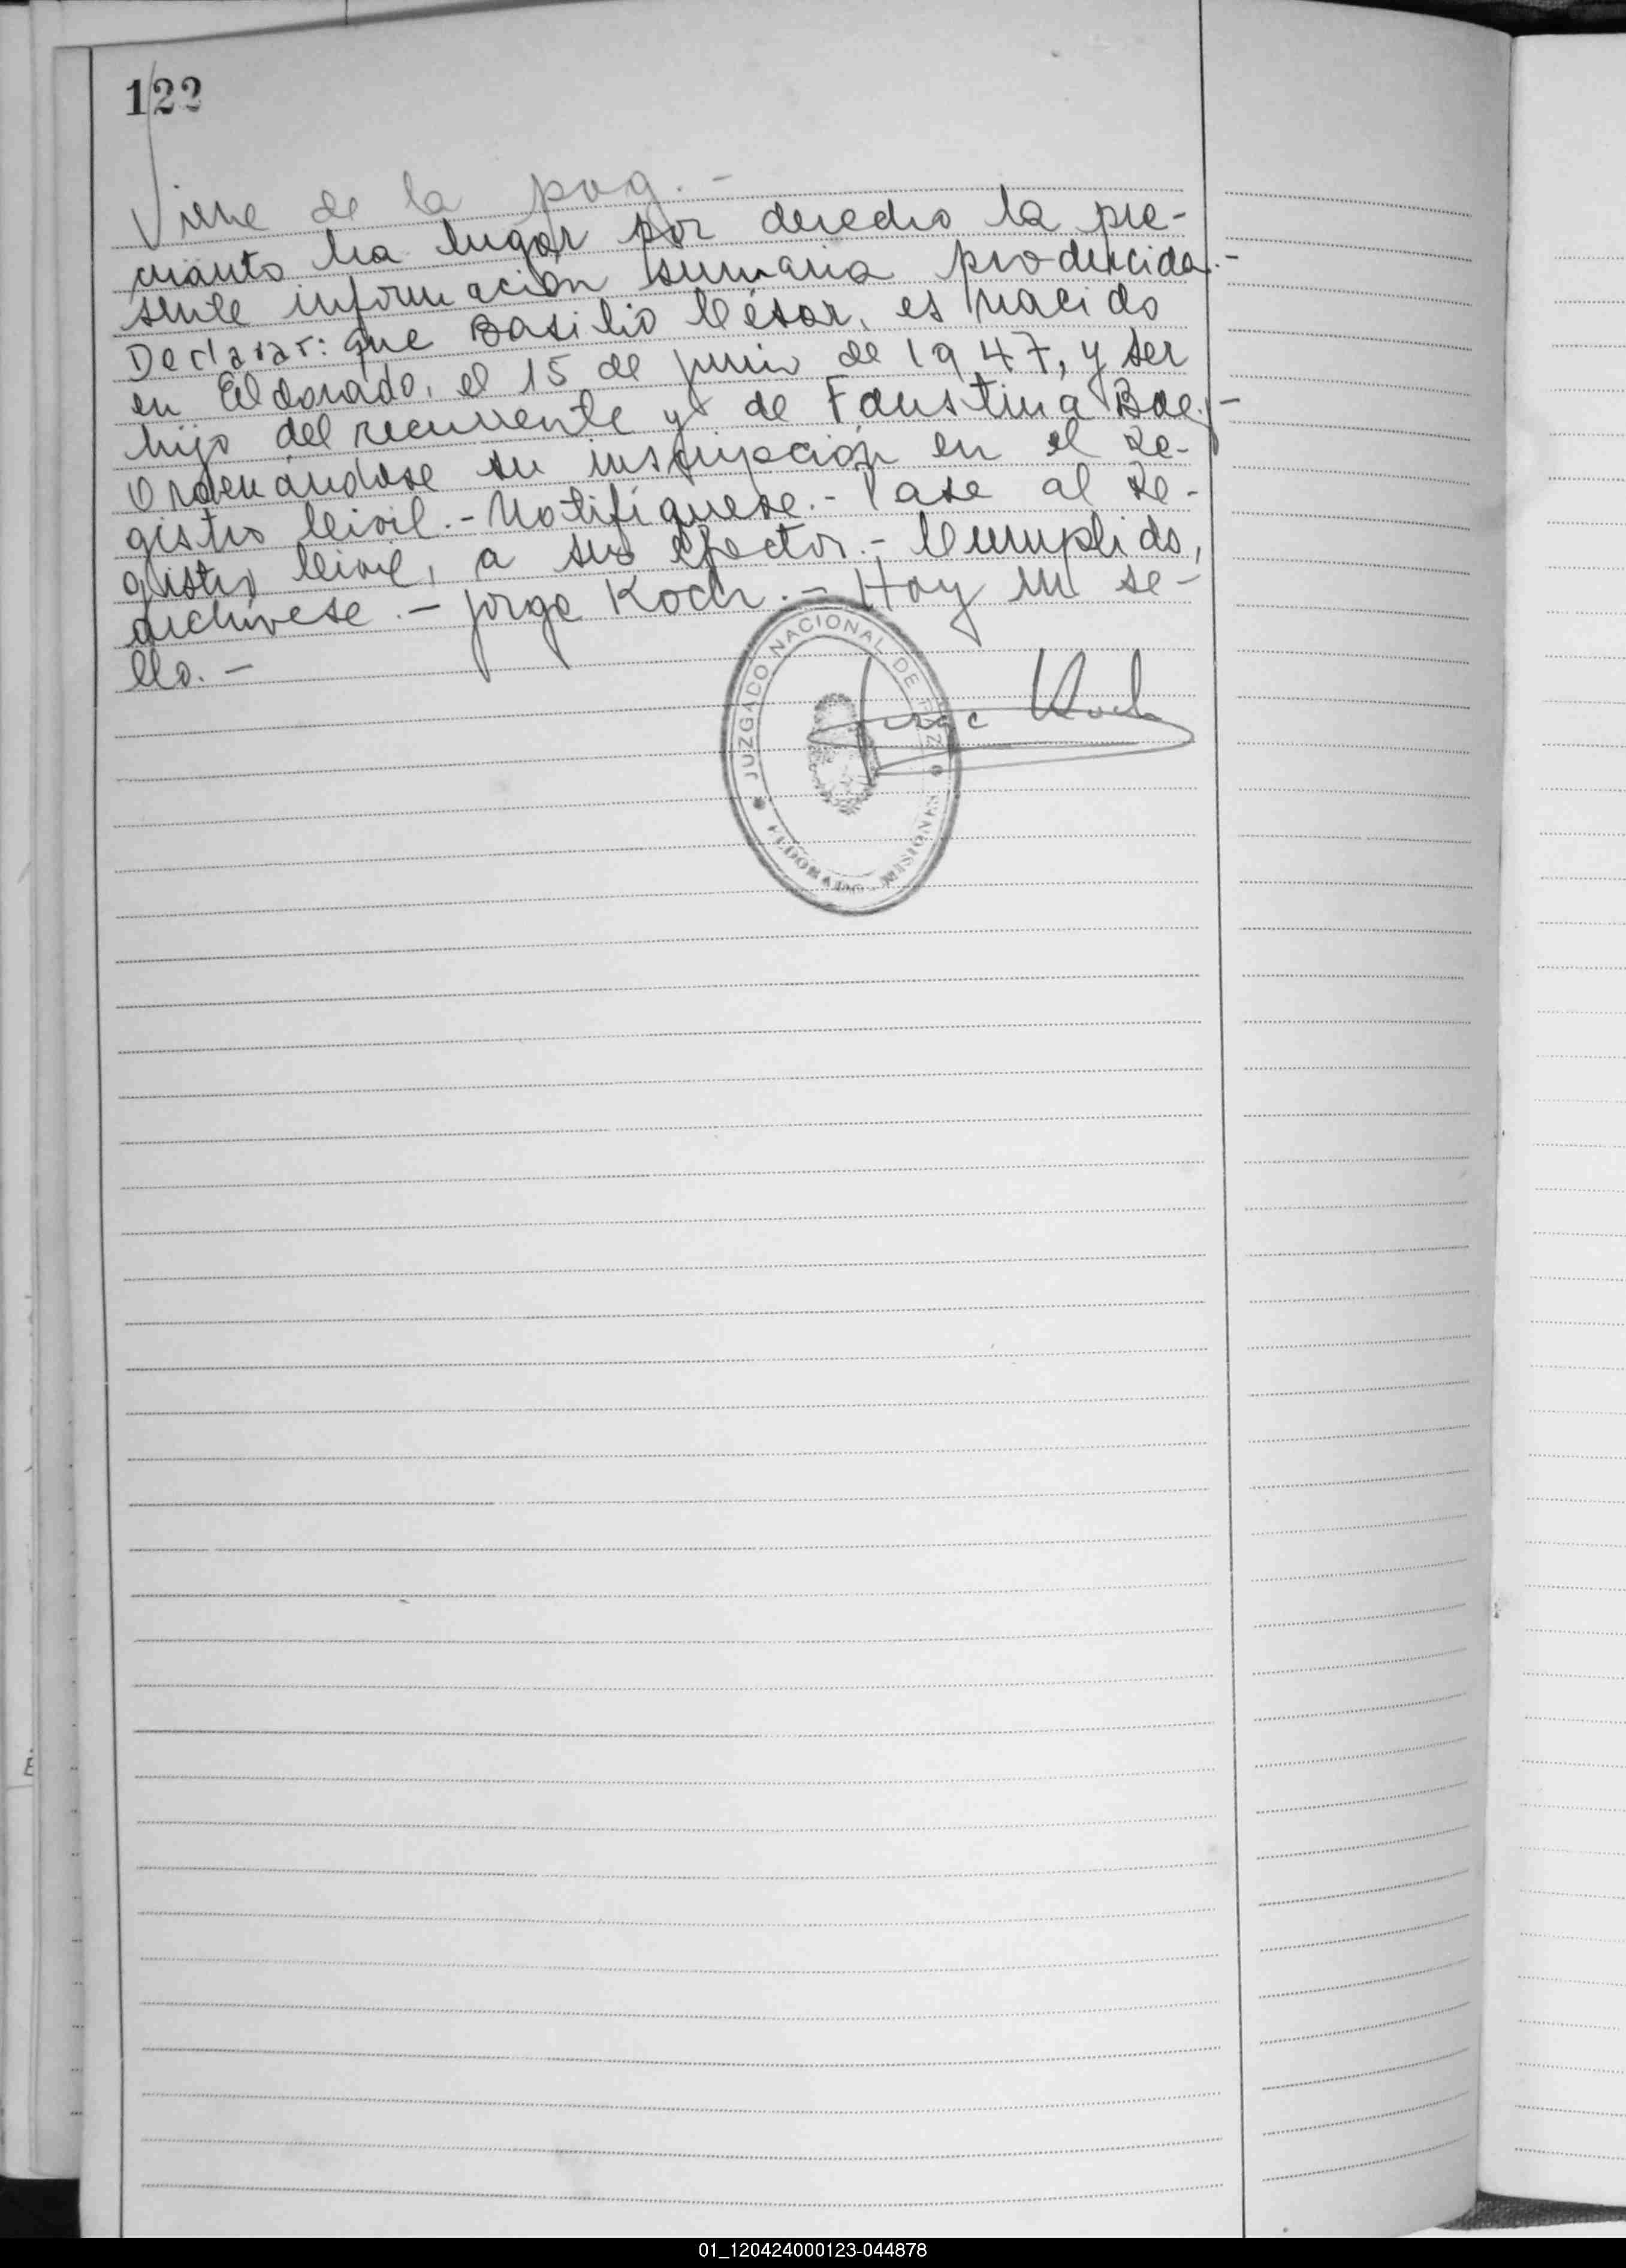 122
Viene de la pag. -
cuanto ha lugar por derecho la pre-
sente información sumaria producida.-
Declarar: que Basilio César, es nacido
en Eldorado, el 15 de junio de 1947, y ser
hijo del recurrente y de Faustina Bae.-
Ordenándose su inscripción en el Re-
gistro Civil.- Notifíquese.- Pase al Re-
gistro Civil, a sus efectos.- Cumplido,
archívese.- Jorge Koch.- Hay un se-
llo.-
JUZGADO NACIONAL DE PAZ
ELDORADO - MISIONES
Jorge Koch
01_120424000123-044878